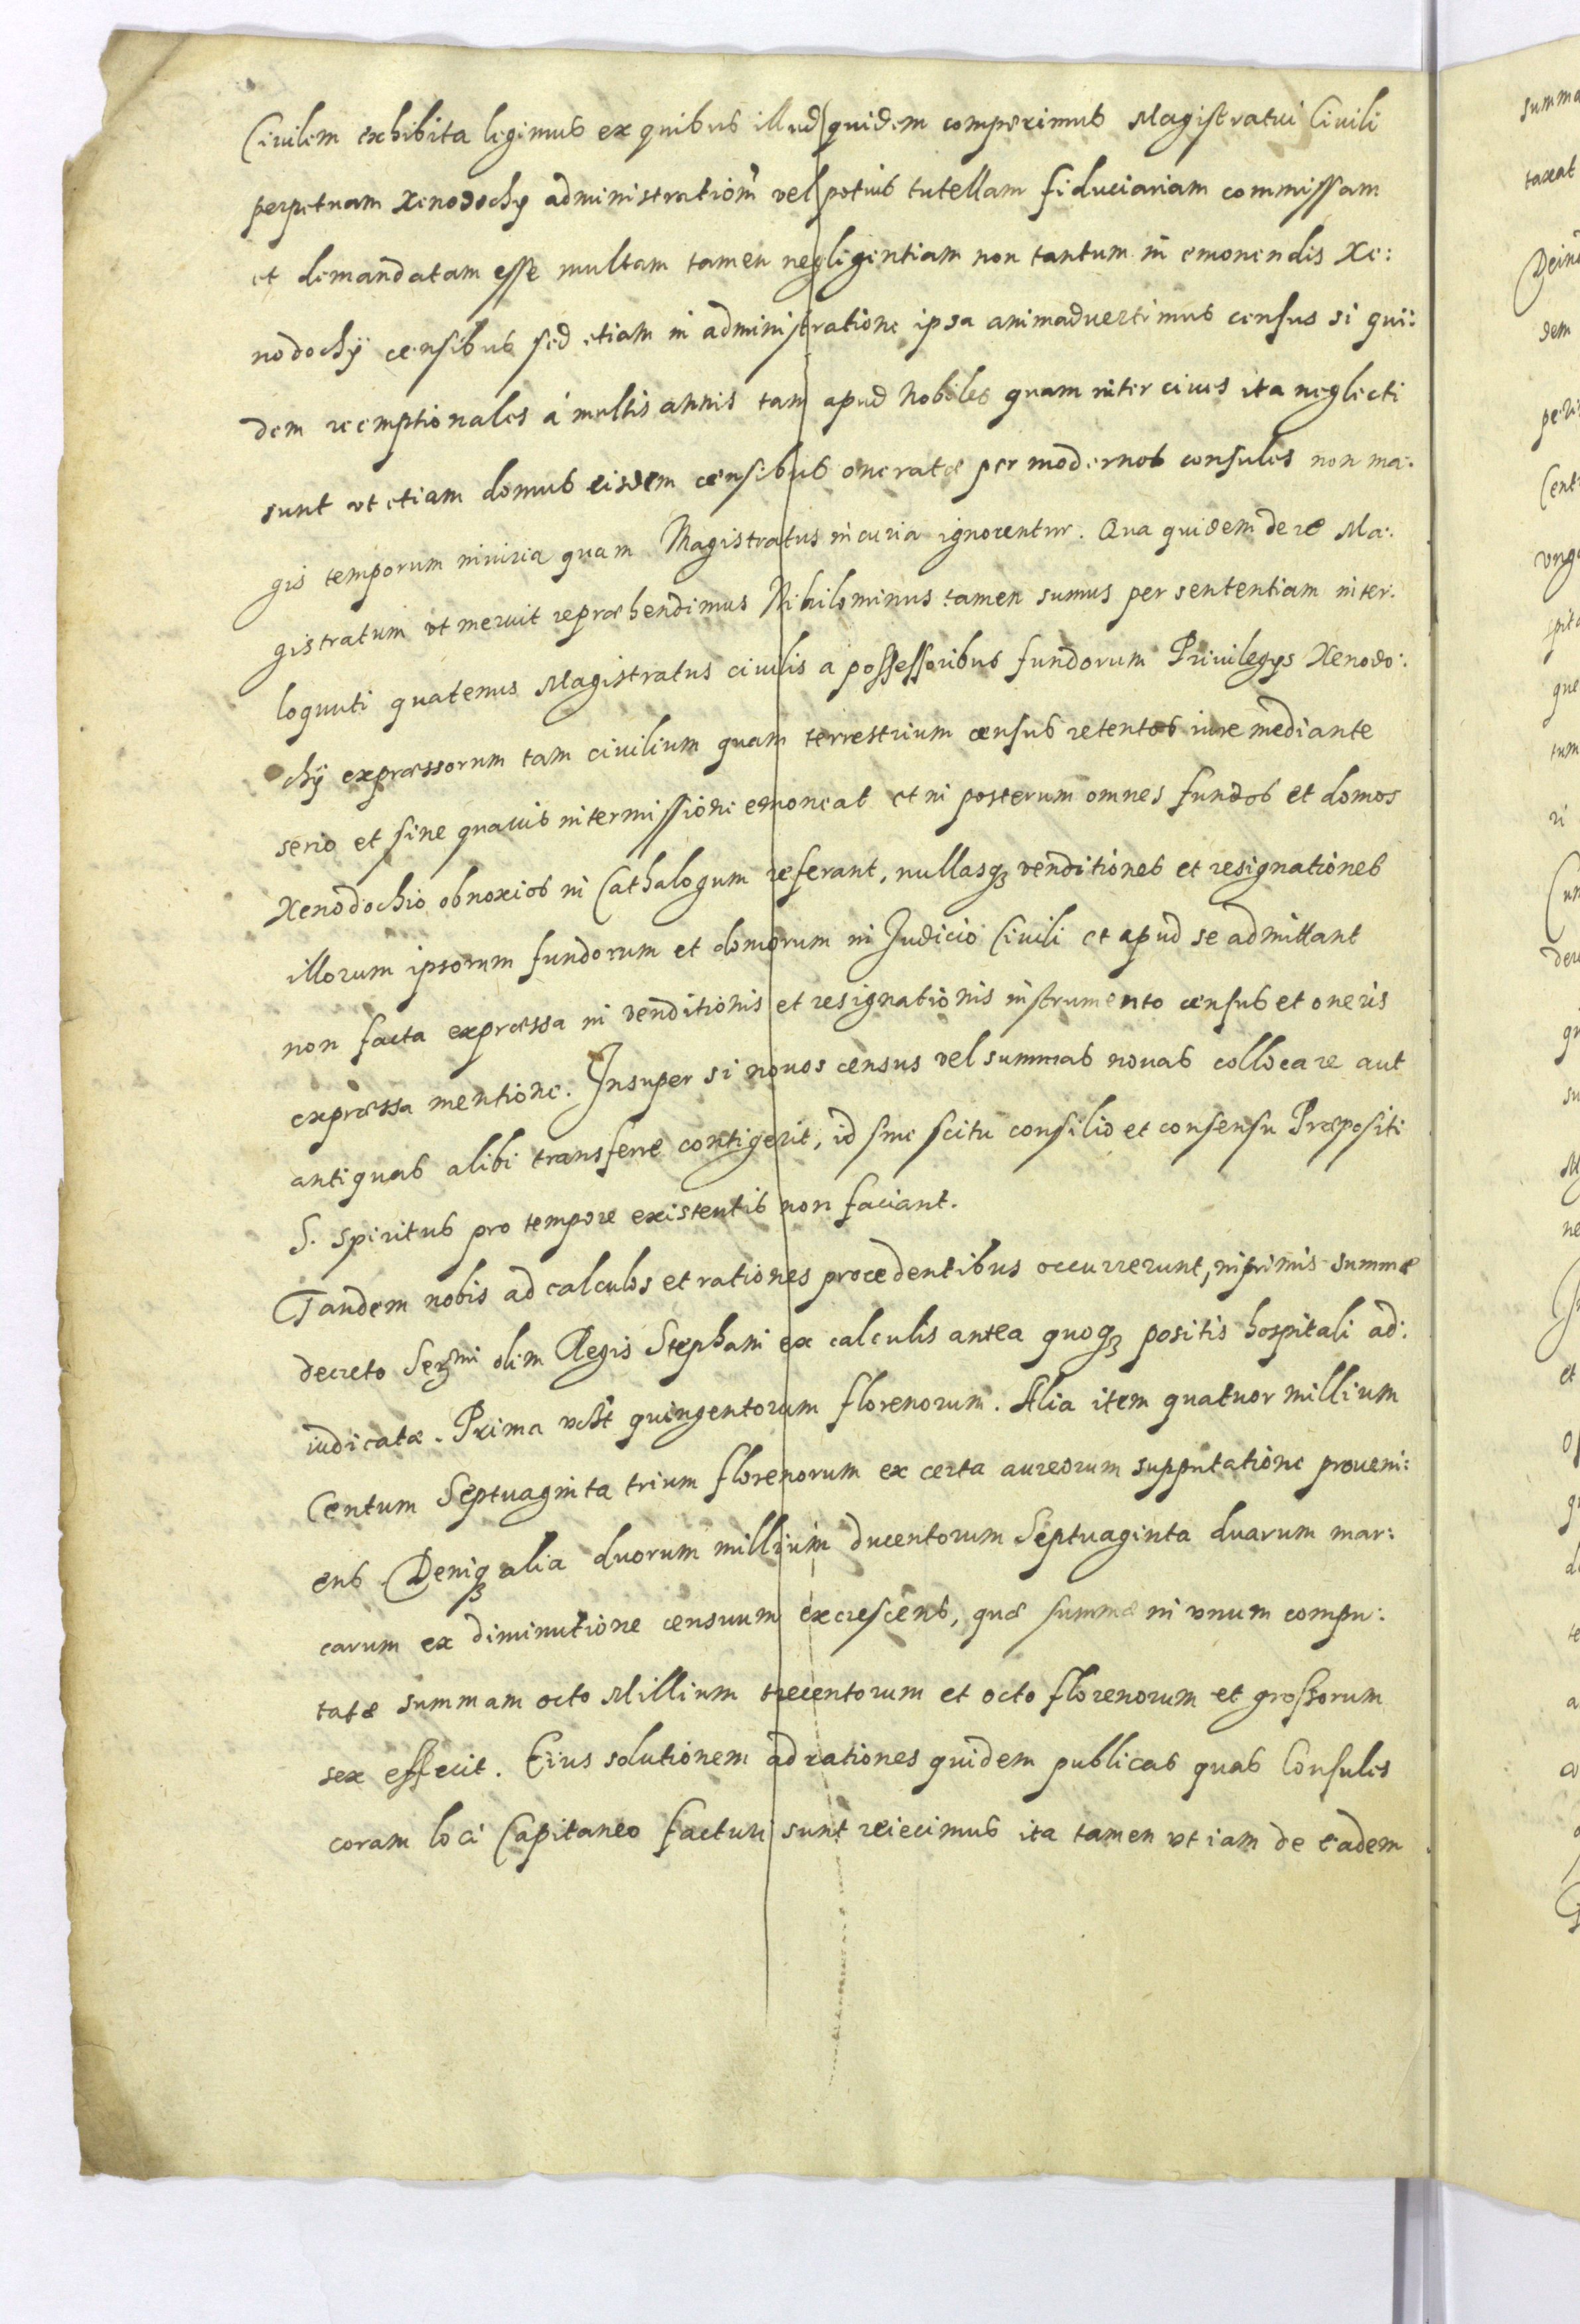 Civilem exhibita legimus ex quibus illud quidem comperimus Magistratui Civili
perpetuam Xenodochÿ administrationē vel potius tutellam fiduciariam commissam
et demandatam esse multam tamen negligentiam non tantum in emonendis Xe:
nodochÿ censibus sed etiam in administratione ipsa animaduertimus census si qui:
dem reemptionales á multis annis tam apud Nobiles quam inter ciues ita neglecti
sunt vt etiam domus eisdem censibus oneratæ per modernos consules non ma:
gis temporum iniuria quam Magistratus incuria ignorentur. Qua quidem de re Ma:
gistratum vt meruit repræhendimus Nihilominus tamen sumus per sententiam inter:
loquuti quatenus Magistratus civilis a possessoribus fundorum Priuilegÿs Xenodo:
chÿ expræssorum tam civilium quam terrestrium census retentos iure mediante
serio et sine quavis intermissione emoneat et in posterum omnes fundos et domos
Xenodochio obnoxios in Cathalogum referant, nullasqȝ venditiones et resignationes
illorum ipsorum fundorum et domorum in Judicio Civili et apud se admittant
non facta expræssa in venditionis et resignationis instrumento census et oneris
expræssa mentione. Insuper si nouos census vel summas nouas collocare aut
antiquas alibi transferre contigerit, id sine scitu consilio et consensu Præpositi
S. Spiritus pro tempore existentis non faciant.
Tandem nobis ad calculos et rationes procedentibus occurrerunt, inprimis summæ
decreto Serᵐⁱ olim Regis Stephani ex calculis antea quoqȝ positis hospitali ad:
iudicatæ. Prima quingentorum florenorum. Alia item quatuor millium
Centum Septuaginta trium florenorum ex certa aureorum supputatione proueni:
ens Deniqȝ alia duorum millium ducentorum Septuaginta duarum mar:
carum ex diminutione censuum excrescens, quæ summæ in vnum compu:
tatæ summam octo Millium trecentorum et octo florenorum et grossorum
sex effecit. Eius solutionem ad rationes quidem publicas quas Consules
coram loci Capitaneo facturi sunt reiecimus ita tamen vt iam de eadem
summa
taxat
dem